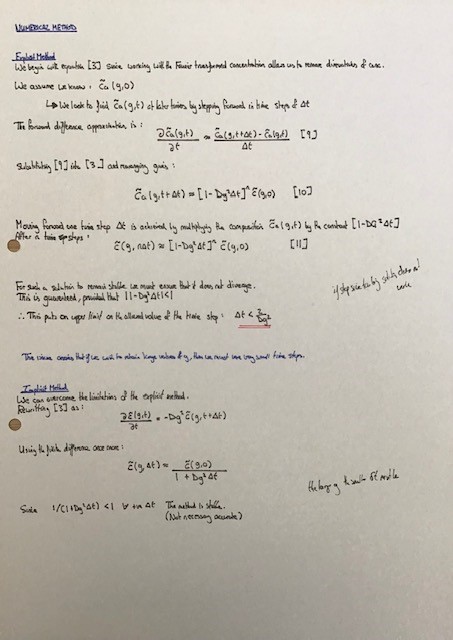 NUMERICAL METHOD
Explicit Method
We begin with equation [3] since working with the Fourier transformed concentration allows us to remove derivatives of
We assume we know : C̃a(q,0)
↳ We look to find C̃a(q,t) at later times by stepping forward in time steps of Δt
The forward difference approximation is :
∂C̃a(q,t)/∂t ≈ (C̃a(q,t+Δt) - C̃a(q,t))/Δt [9]
Substituting [9] into [3] and rearranging gives :
C̃a(q,t+Δt) = [1-Dq²Δt]^ C̃(q,0) [10]
Moving forward one time step Δt is achieved by multiplying the composition C̃a(q,t) by the constant [1-DQ²Δt]
After n time steps :
C̃(q,nΔt) ≈ [1-Dq²Δt]^n C̃(q,0) [11]
For such a solution to remain stable we must ensure that it does not diverge.
This is guaranteed, provided that |1-Dq²Δt|<1
∴ This puts an upper limit on the allowed value of the time step : Δt < 2/Dq²
if step size too big solution does not work
The issue that if we wish to obtain large values of q, then we must use very small time steps.
Implicit Method
We can overcome the limitations of the explicit method.
Rewriting [3] as :
∂C̃(q,t)/∂t = -Dq² C̃(q,t+Δt)
Using the finite difference once more :
C̃(q,Δt) = C̃(q,0)/(1+Dq²Δt)
the larger q the smaller Δt
Since 1/(1+Dq²Δt) <1 ∀ +ve Δt The method is stable.
(Not necessary accurate)